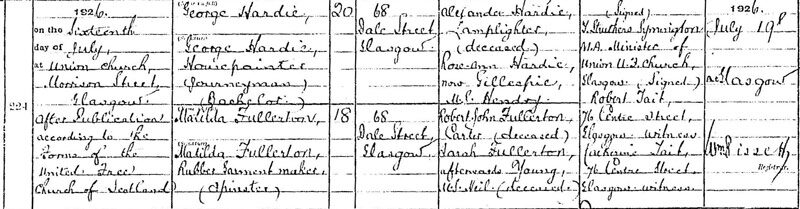 1926.
on the Sixteenth
day of
July,
at Union Church,
Morrison Street,
Glasgow.
After Publication
according to the
Forms of the
United Free
Church of Scotland
224
George Hardie,
(Signed)
George Hardie,
Housepainter
(Journeyman)
(Bachelor)
Matilda Fullerton,
(Signed)
Matilda Fullerton,
Rubber Garment maker,
(Spinster)
20
18
68
Dale Street,
Glasgow.
68
Dale Street,
Glasgow.
Alexander Hardie,
Lamplighter
(deceased)
Rose-Ann Hardie,
now Gillespie,
M.S. Hendry.
Robert John Fullerton,
Carter (deceased)
Sarah Fullerton,
afterwards Young,
M.S. Neil (deceased)
(Signed)
J. Struthers Symington
M.A. Minister of
Union U.F. Church,
Glasgow (Signed)
Robert Tait,
76 Centre Street,
Glasgow witness
Catherine Tait,
76 Centre Street
Glasgow witness.
1926
July 19th
at Glasgow
Wm Bisset
Registrar.